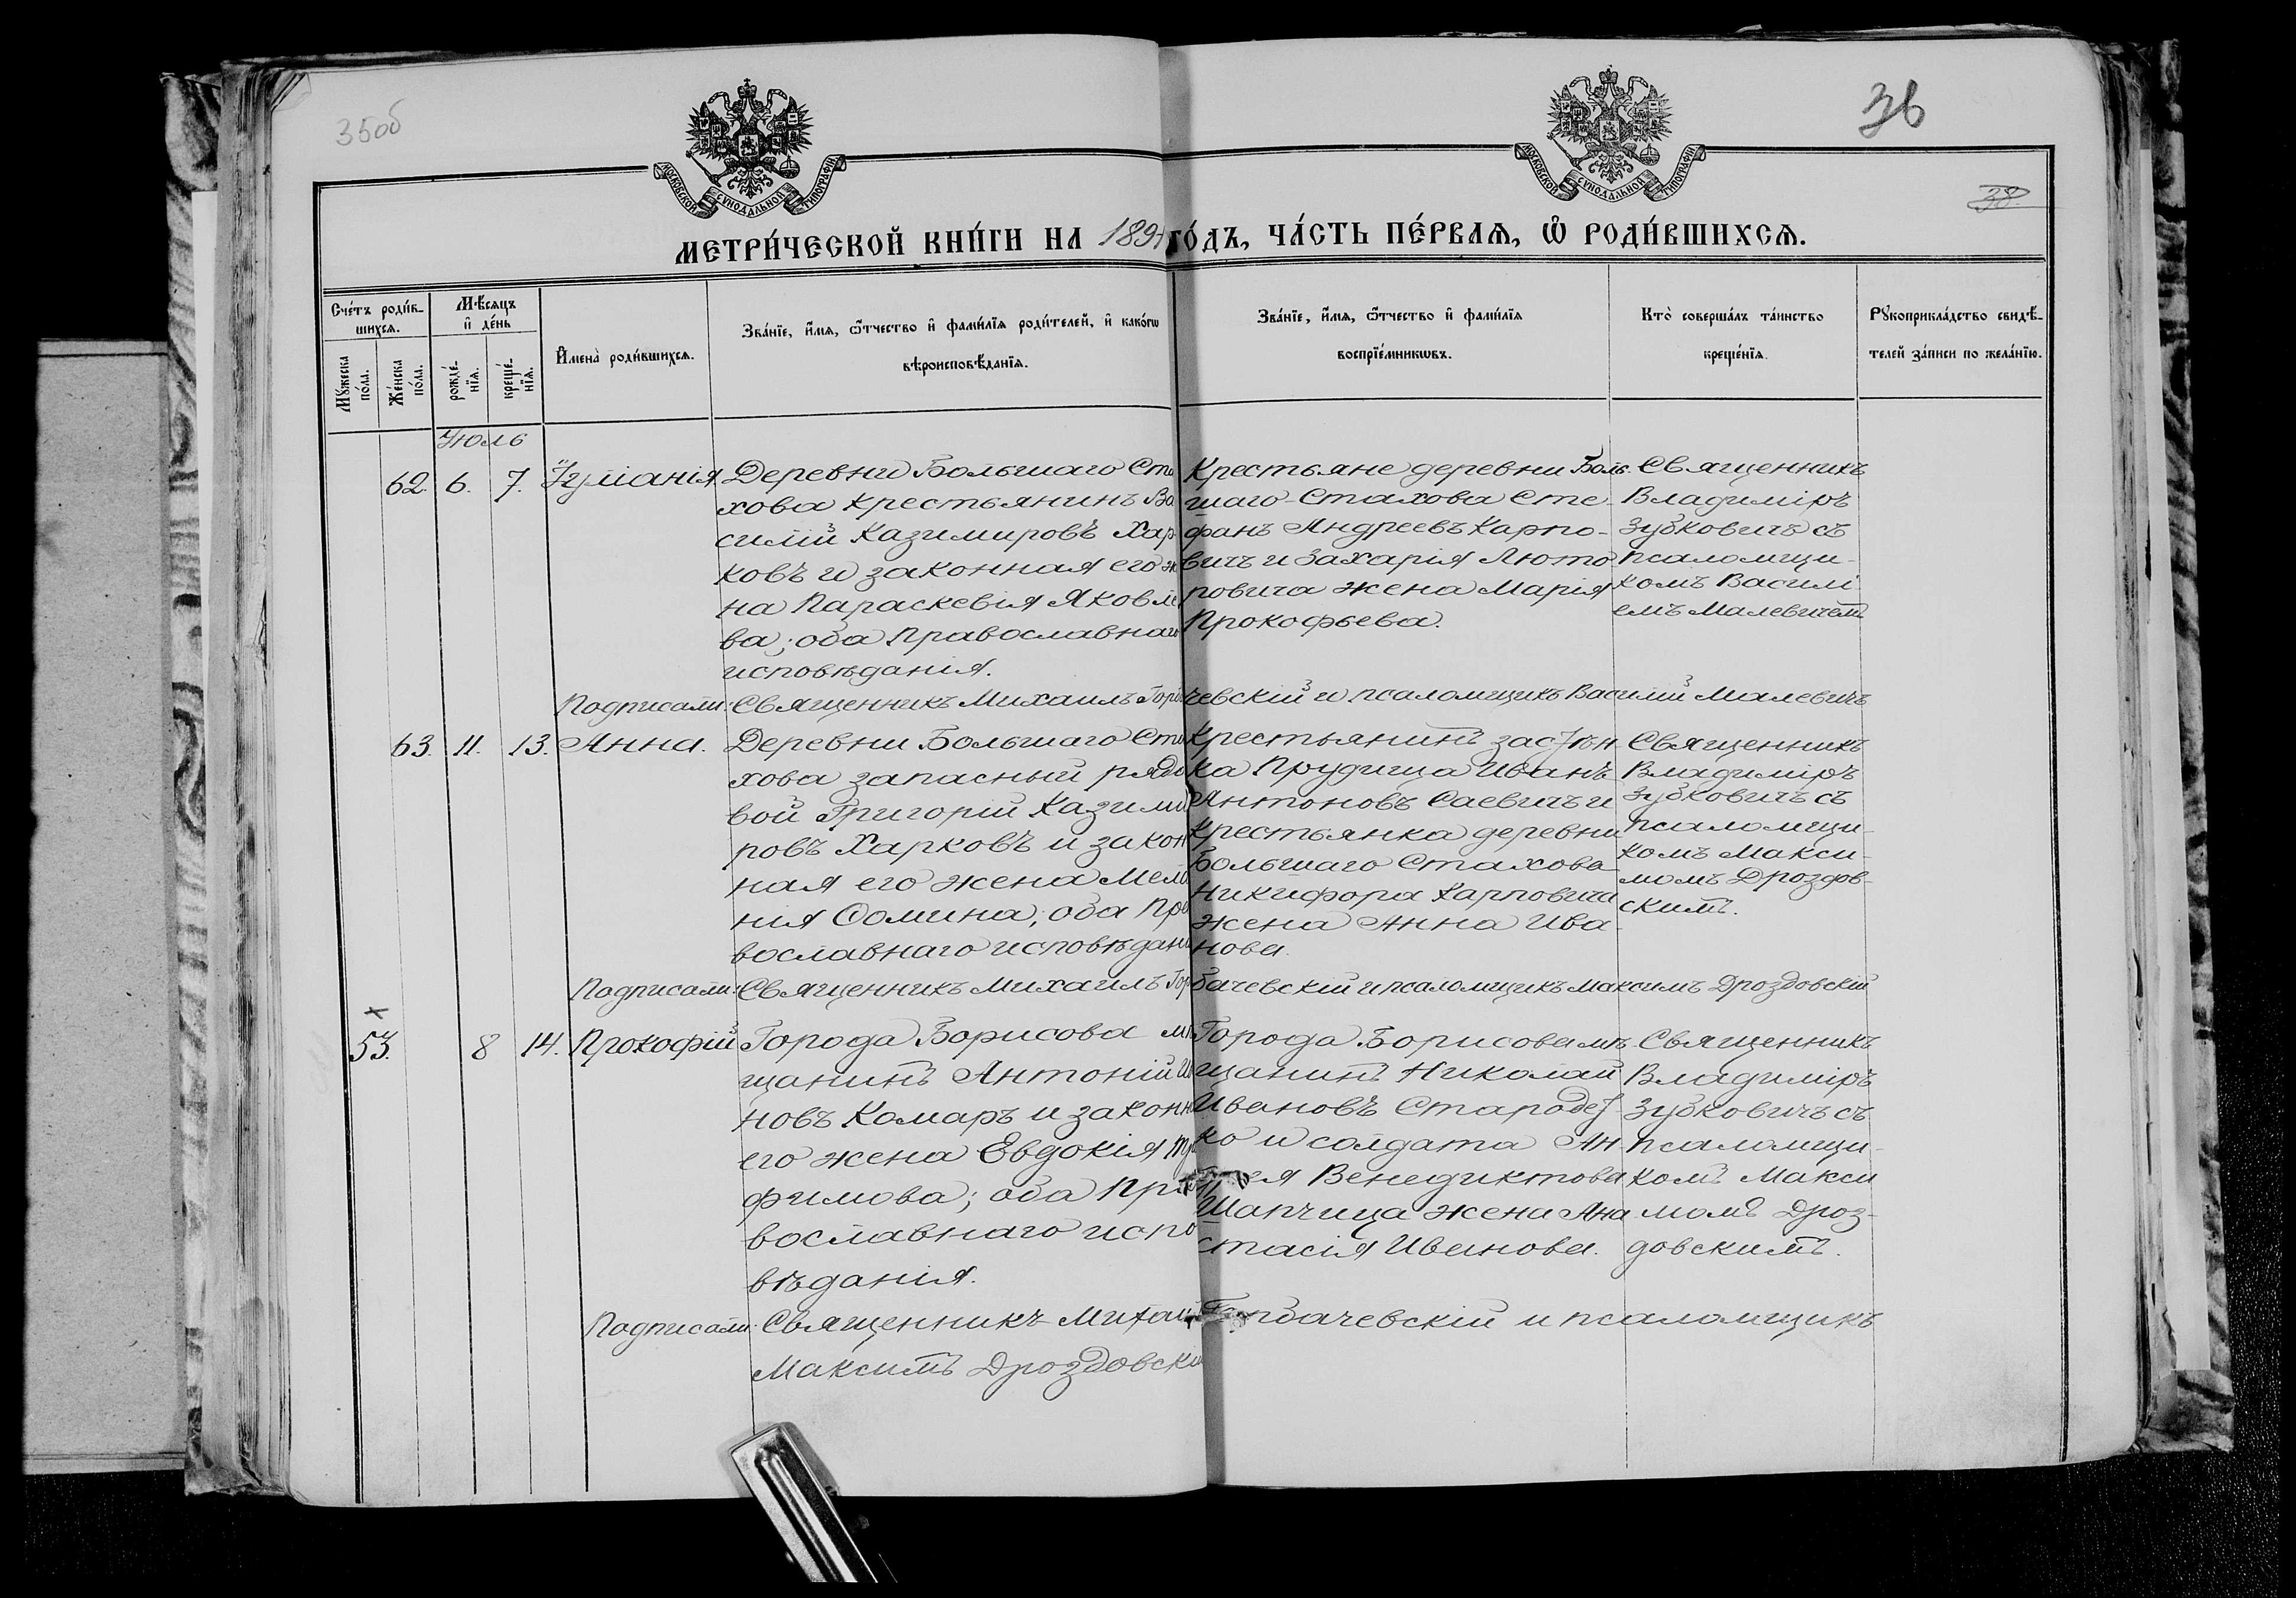 35об
36
38
МОСКОВСКОЙ СѴНОДАЛЬНОЙ ТИПОГРАФІИ
МОСКОВСКОЙ СѴНОДАЛЬНОЙ ТИПОГРАФІИ
МЕТРИ́ЧЕСКОЙ КНИ́ГИ НА 189 ГО́ДЪ, ЧА́СТЬ ПЕ́РВАѦ, Ѽ РОДИ́ВШИХСѦ.
Сче́тъ роди́в-
шихсѧ.
Мꙋ́жеска
по́ла.
Же́нска
по́ла.
Мѣ́сѧцъ
и҆ де́нь
рожде́-
нїѧ.
креще́-
нїѧ.
И҆мена̀ роди́вшихсѧ.
Зва́нїе, и҆́мѧ, ѻ҆́тчество и҆ фами́лїѧ роди́телей, и҆ како́гѡ
вѣроисповѣ́данїѧ.
Зва́нїе, и҆́мѧ, ѻ҆́тчество и҆ фами́лїѧ
воспрїе́мникѡвъ.
Кто̀ соверша́лъ та́инство
креще́нїѧ.
Рꙋкоприкла́дство свидѣ́-
телей за́писи по жела́нїю.
Июль
62. 6. 7. Іуліанія
Деревни Большаго Ста
хова крестьянинъ Ва
силій Казимировъ Хар
ковъ и законная его ж
на Параскевія Яковле
ва; оба Православнаго
исповѣданія.
Крестьяне деревни Боль
шаго-Стахова Сте-
фанъ Андреевъ Карпо-
вичъ и Захарія Люто
повича жена Марія
Прокофьева.
Священникъ
Владиміръ
Зубковичъ съ
псаломщи-
комъ Васили
емъ Малевичемъ
Подписали: Священникъ Михаилъ Горбачевскій и псаломщикъ Василій Малевичъ
63. 11. 13. Анна.
Деревни Большаго Ста
хова запасный рядо
вой Григорій Казими
ровъ Харковъ и закон
ная его жена Мела
нія Ѳомина; оба Пра
вославнаго исповѣдані
Крестьянинъ застѣн
ка Прудища Иванъ
Антоновъ Саевичъ и
крестьянка деревни
Большаго Стахова
Никифора Карповича
жена Анна Ива-
нова.
Священникъ
Владиміръ
Зубковичъ съ
псаломщи-
комъ Макси-
момъ Дроздов-
скимъ.
Подписали: Священникъ Михаилъ Горбачевскій и псаломщикъ Максимъ Дроздовскій
53. 8 14. Прокофій
Города Борисова мѣ
щанинъ Антоній И
новъ Комаръ и законн
его жена Евдокія Тро
фимова; оба Пра
вославнаго испо
вѣданія.
Города Борисова мѣ
щанинъ Николай
Ивановъ
ко и солдата Ан-
Венедиктова
Шапчица жена Ана
стасія Иванова.
Священникъ
Владиміръ
Зубковичъ съ
псаломщи-
комъ Макси
момъ Дроз-
довскимъ.
Подписали: Священникъ Михаилъ Горбачевскій и псаломщикъ
Максимъ Дроздовскій